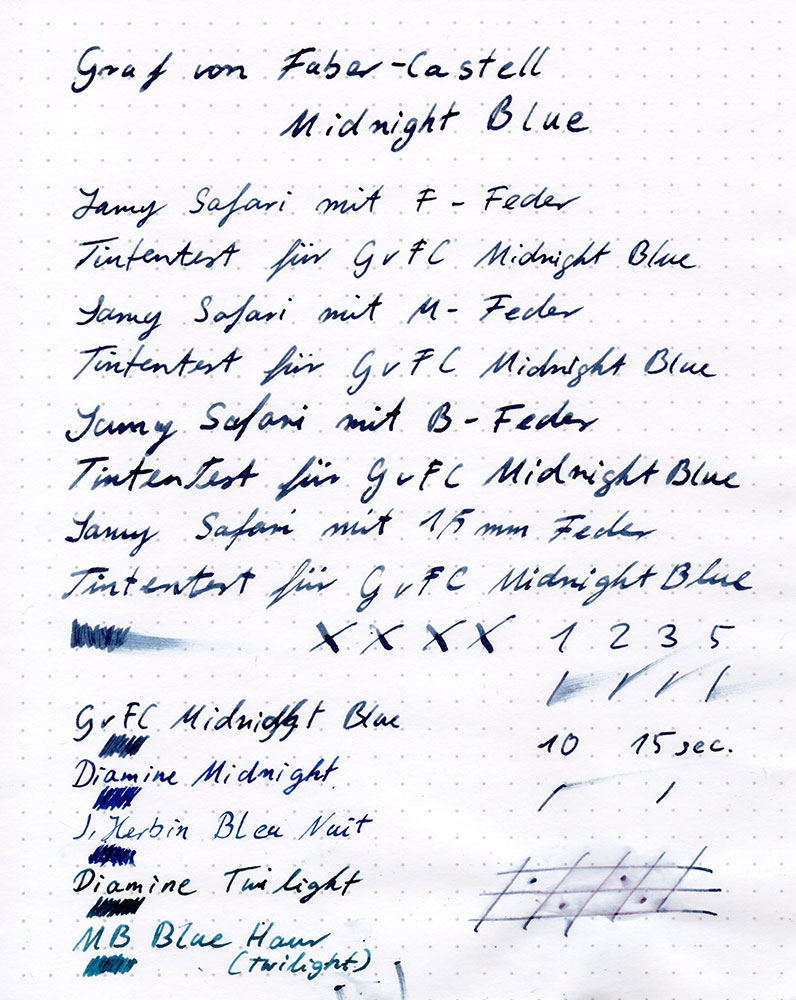 Graf von Faber-Castell
Midnight Blue
Lamy Safari mit F - Feder
Tintentest für GvFC Midnight Blue
Lamy Safari mit M - Feder
Tintentest für GvFC Midnight Blue
Lamy Safari mit B - Feder
TintenTest für GvFC Midnight Blue
Lamy Safari mit 1,5 mm Feder
Tintentest für GvFC Midnight Blue
X X X X 1 2 3 5
GvFC Midnight Blue
10 15 sec.
Diamine Midnight
J. Herbin Bleu Nuit
Diamine Twilight
MB Blue Hour
(Twilight)